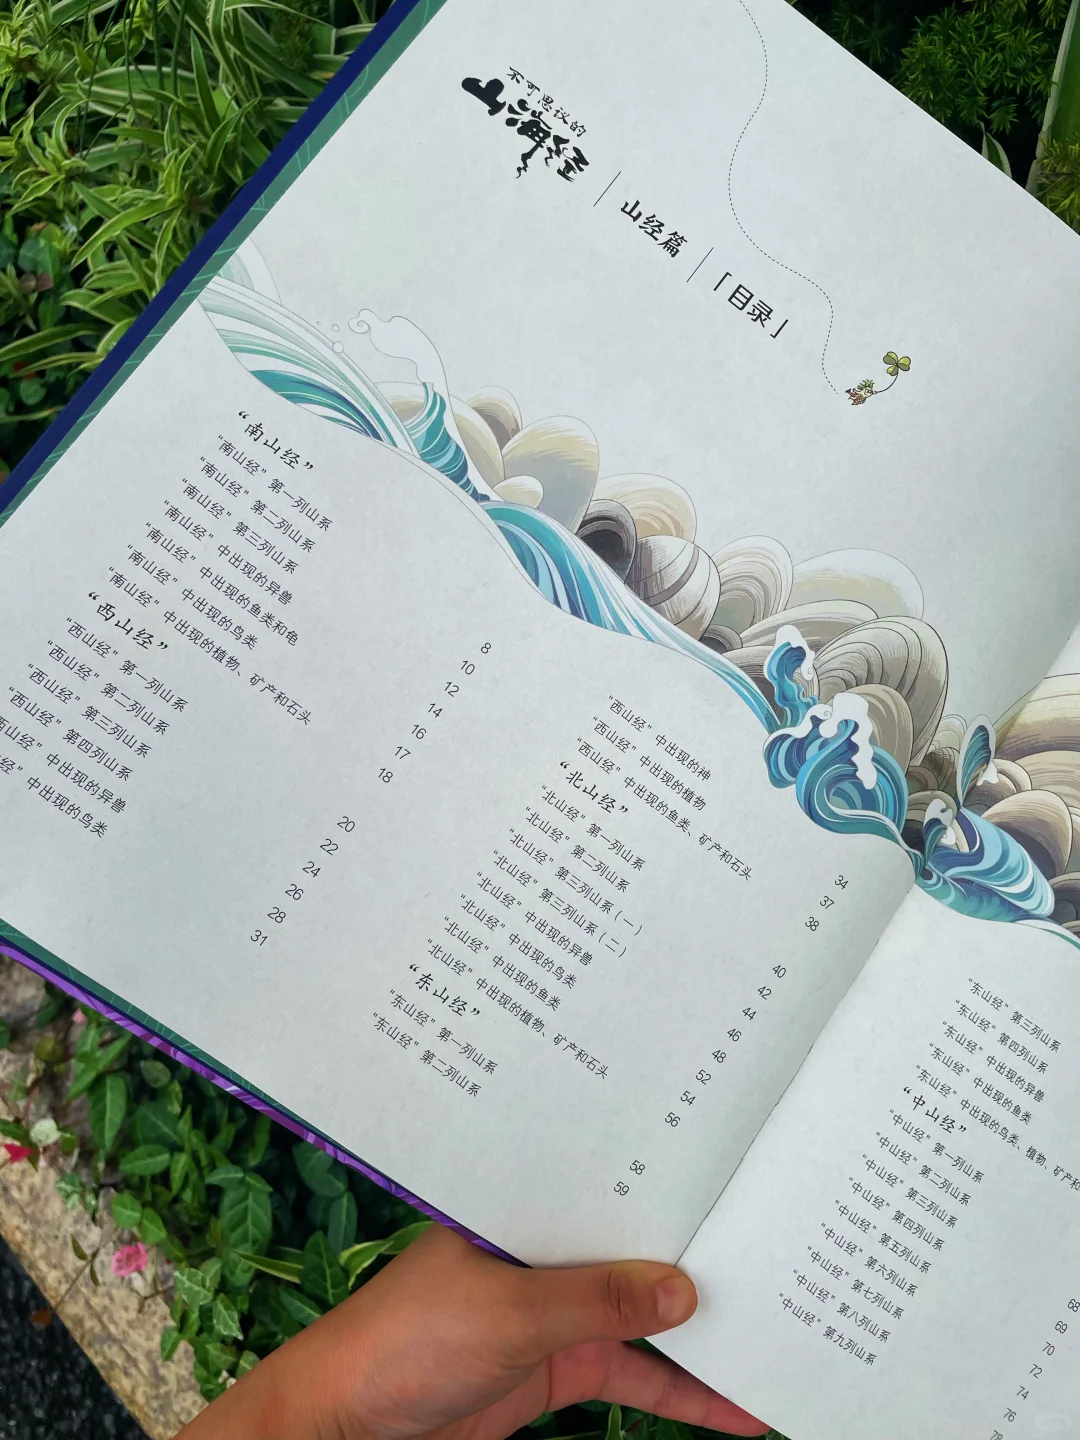 不可思议的
山海经
山经篇
「目录」
“南山经”
“南山经”第一列山系 8
“南山经”第二列山系 10
“南山经”第三列山系 12
“南山经”中出现的异兽 14
“南山经”中出现的鱼类和龟 16
“南山经”中出现的鸟类 17
“南山经”中出现的植物、矿产和石头 18
“西山经”
“西山经”第一列山系 20
“西山经”第二列山系 22
“西山经”第三列山系 24
“西山经”第四列山系 26
西山经”中出现的异兽 28
经”中出现的鸟类 31
“西山经”中出现的神 34
“西山经”中出现的植物 37
“西山经”中出现的鱼类、矿产和石头 38
“北山经”
“北山经”第一列山系 40
“北山经”第二列山系 42
“北山经”第三列山系（一） 44
“北山经”第三列山系（二） 46
“北山经”中出现的异兽 48
“北山经”中出现的鸟类 52
“北山经”中出现的鱼类 54
“北山经”中出现的植物、矿产和石头 56
“东山经”
“东山经”第一列山系 58
“东山经”第二列山系 59
“东山经”第三列山系
“东山经”第四列山系
“东山经”中出现的异兽
“东山经”中出现的鱼类
“东山经”中出现的鸟类、植物、矿产和
“中山经”
“中山经”第一列山系
“中山经”第二列山系
“中山经”第三列山系
“中山经”第四列山系
“中山经”第五列山系
“中山经”第六列山系
“中山经”第七列山系
“中山经”第八列山系
“中山经”第九列山系
68
69
70
72
74
76
78